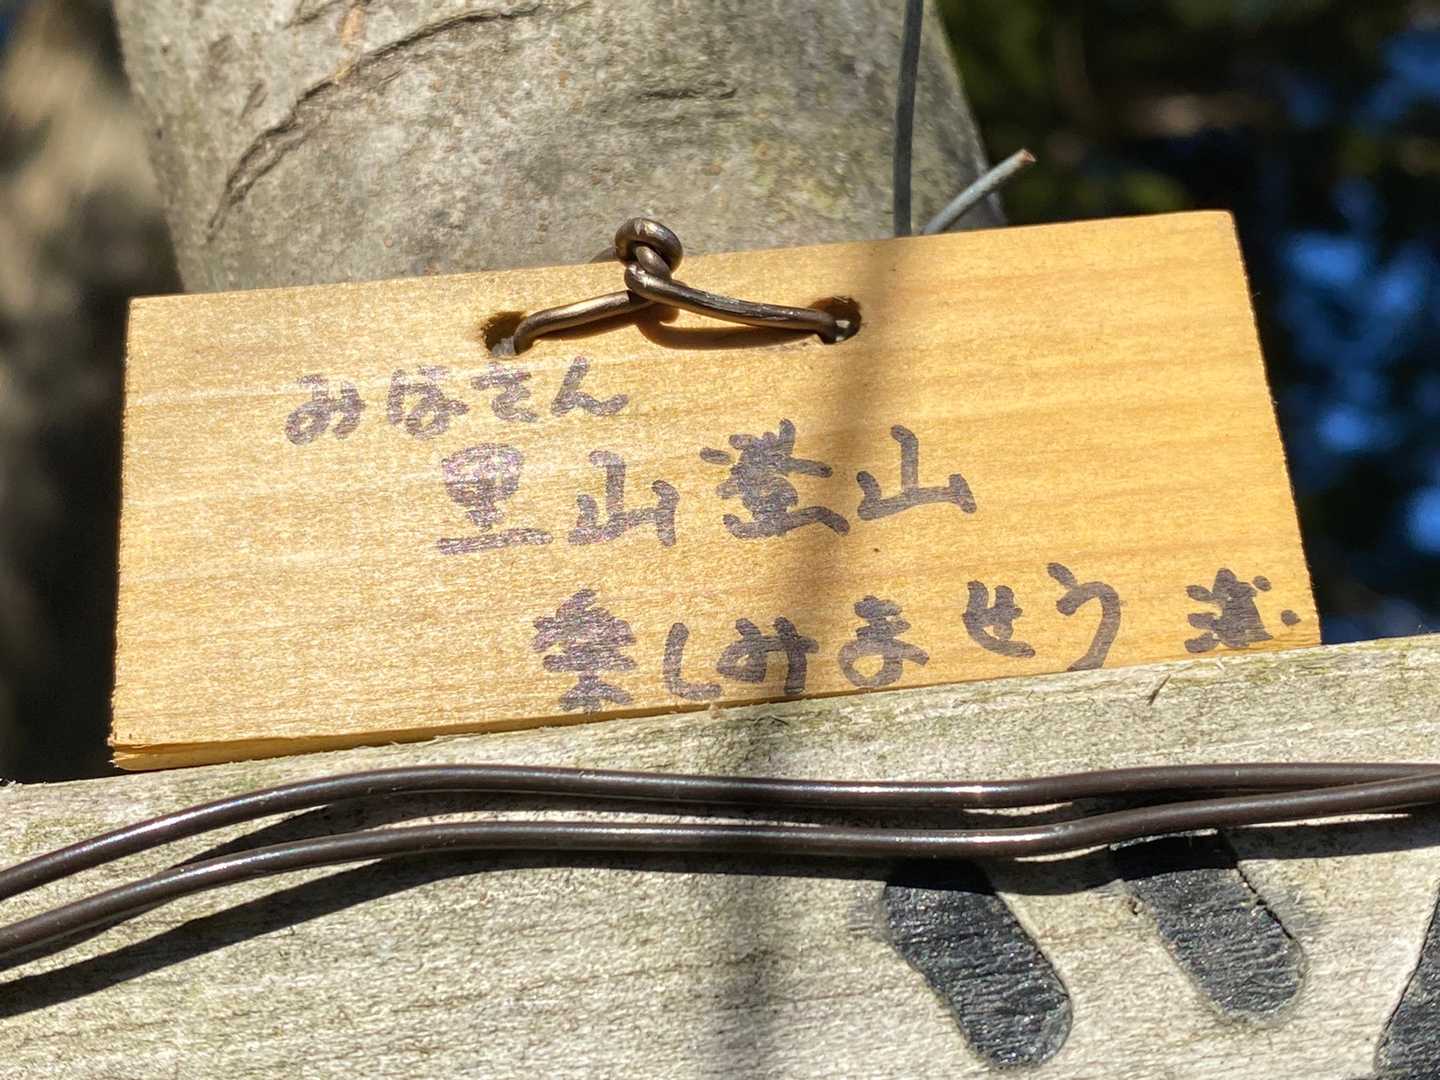 みなさん
里山登山
楽しみませう